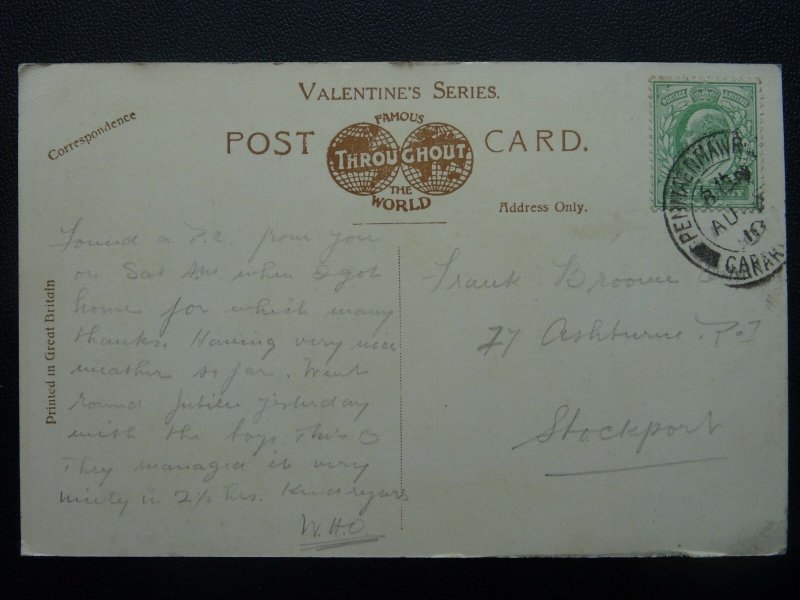 VALENTINE'S SERIES.
Correspondence
POST CARD.
FAMOUS
THROUGHOUT
THE
WORLD
Address Only.
Printed in Great Britain
PENMAENMAWR
AU
10
Found a P.C. from you
on Sat when I got
home for which many
thanks. Having very nice
weather so far. Went
round Jubilee yesterday
with the boys
They managed it very
nicely in 2½ hrs. Kind regards
W.H.O.
Frank Broome
Ashburne Rd
Stockport